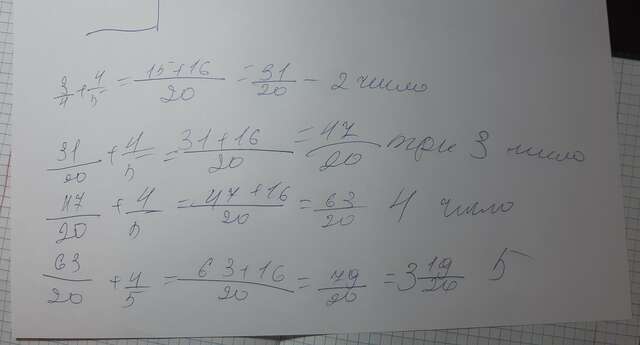 3/4 + 4/5 = 15+16/20 = 31/20 - 2 число
31/20 + 4/5 = 31+16/20 = 47/20 при 3 число
47/20 + 4/5 = 47+16/20 = 63/20 4 число
63/20 + 4/5 = 63+16/20 = 79/20 = 3 19/20 5